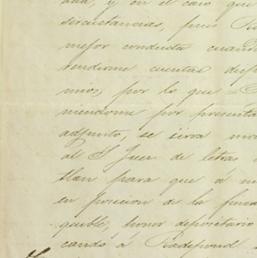 ada, y en el caso que
circunstancias, pero
mejor conducta cuand
rendirme cuentas desp
mos, por lo que
niendome por presenta
adjunto, se sirva
al S. Juez de letras
tlan para que á
en posecion de la finca
quible, honor depositario
cando á